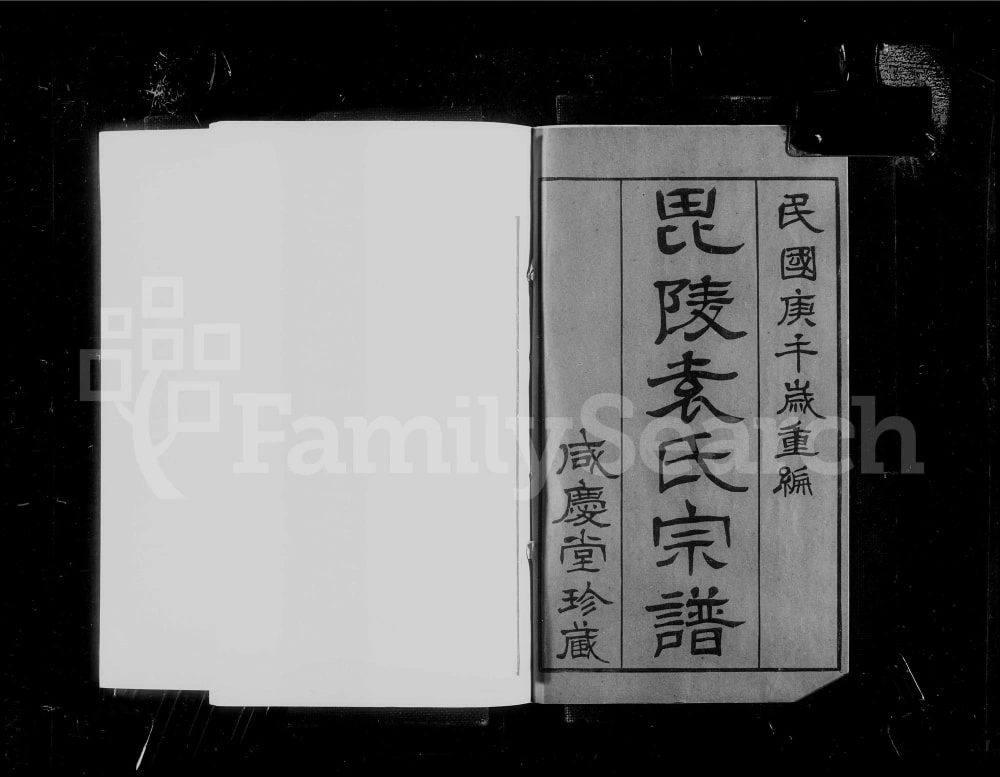 民國庚午歲重編
毘陵袁氏宗譜
咸慶堂珍藏
FamilySearch